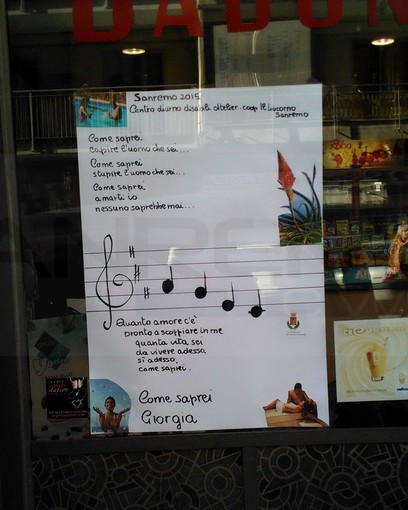 BADUN
Sanremo 2015
Centro diurno disabili
Sanremo
Come saprei
capire l'uomo che sei...
Come saprei
stupire l'uomo che sei...
Come saprei
amarti io
nessuno saprebbe mai...
Quanto amore c'è
pronto a scoppiare in me
quanta vita sei
da vivere adesso
sì adesso
come saprei.
Come saprei
Giorgia